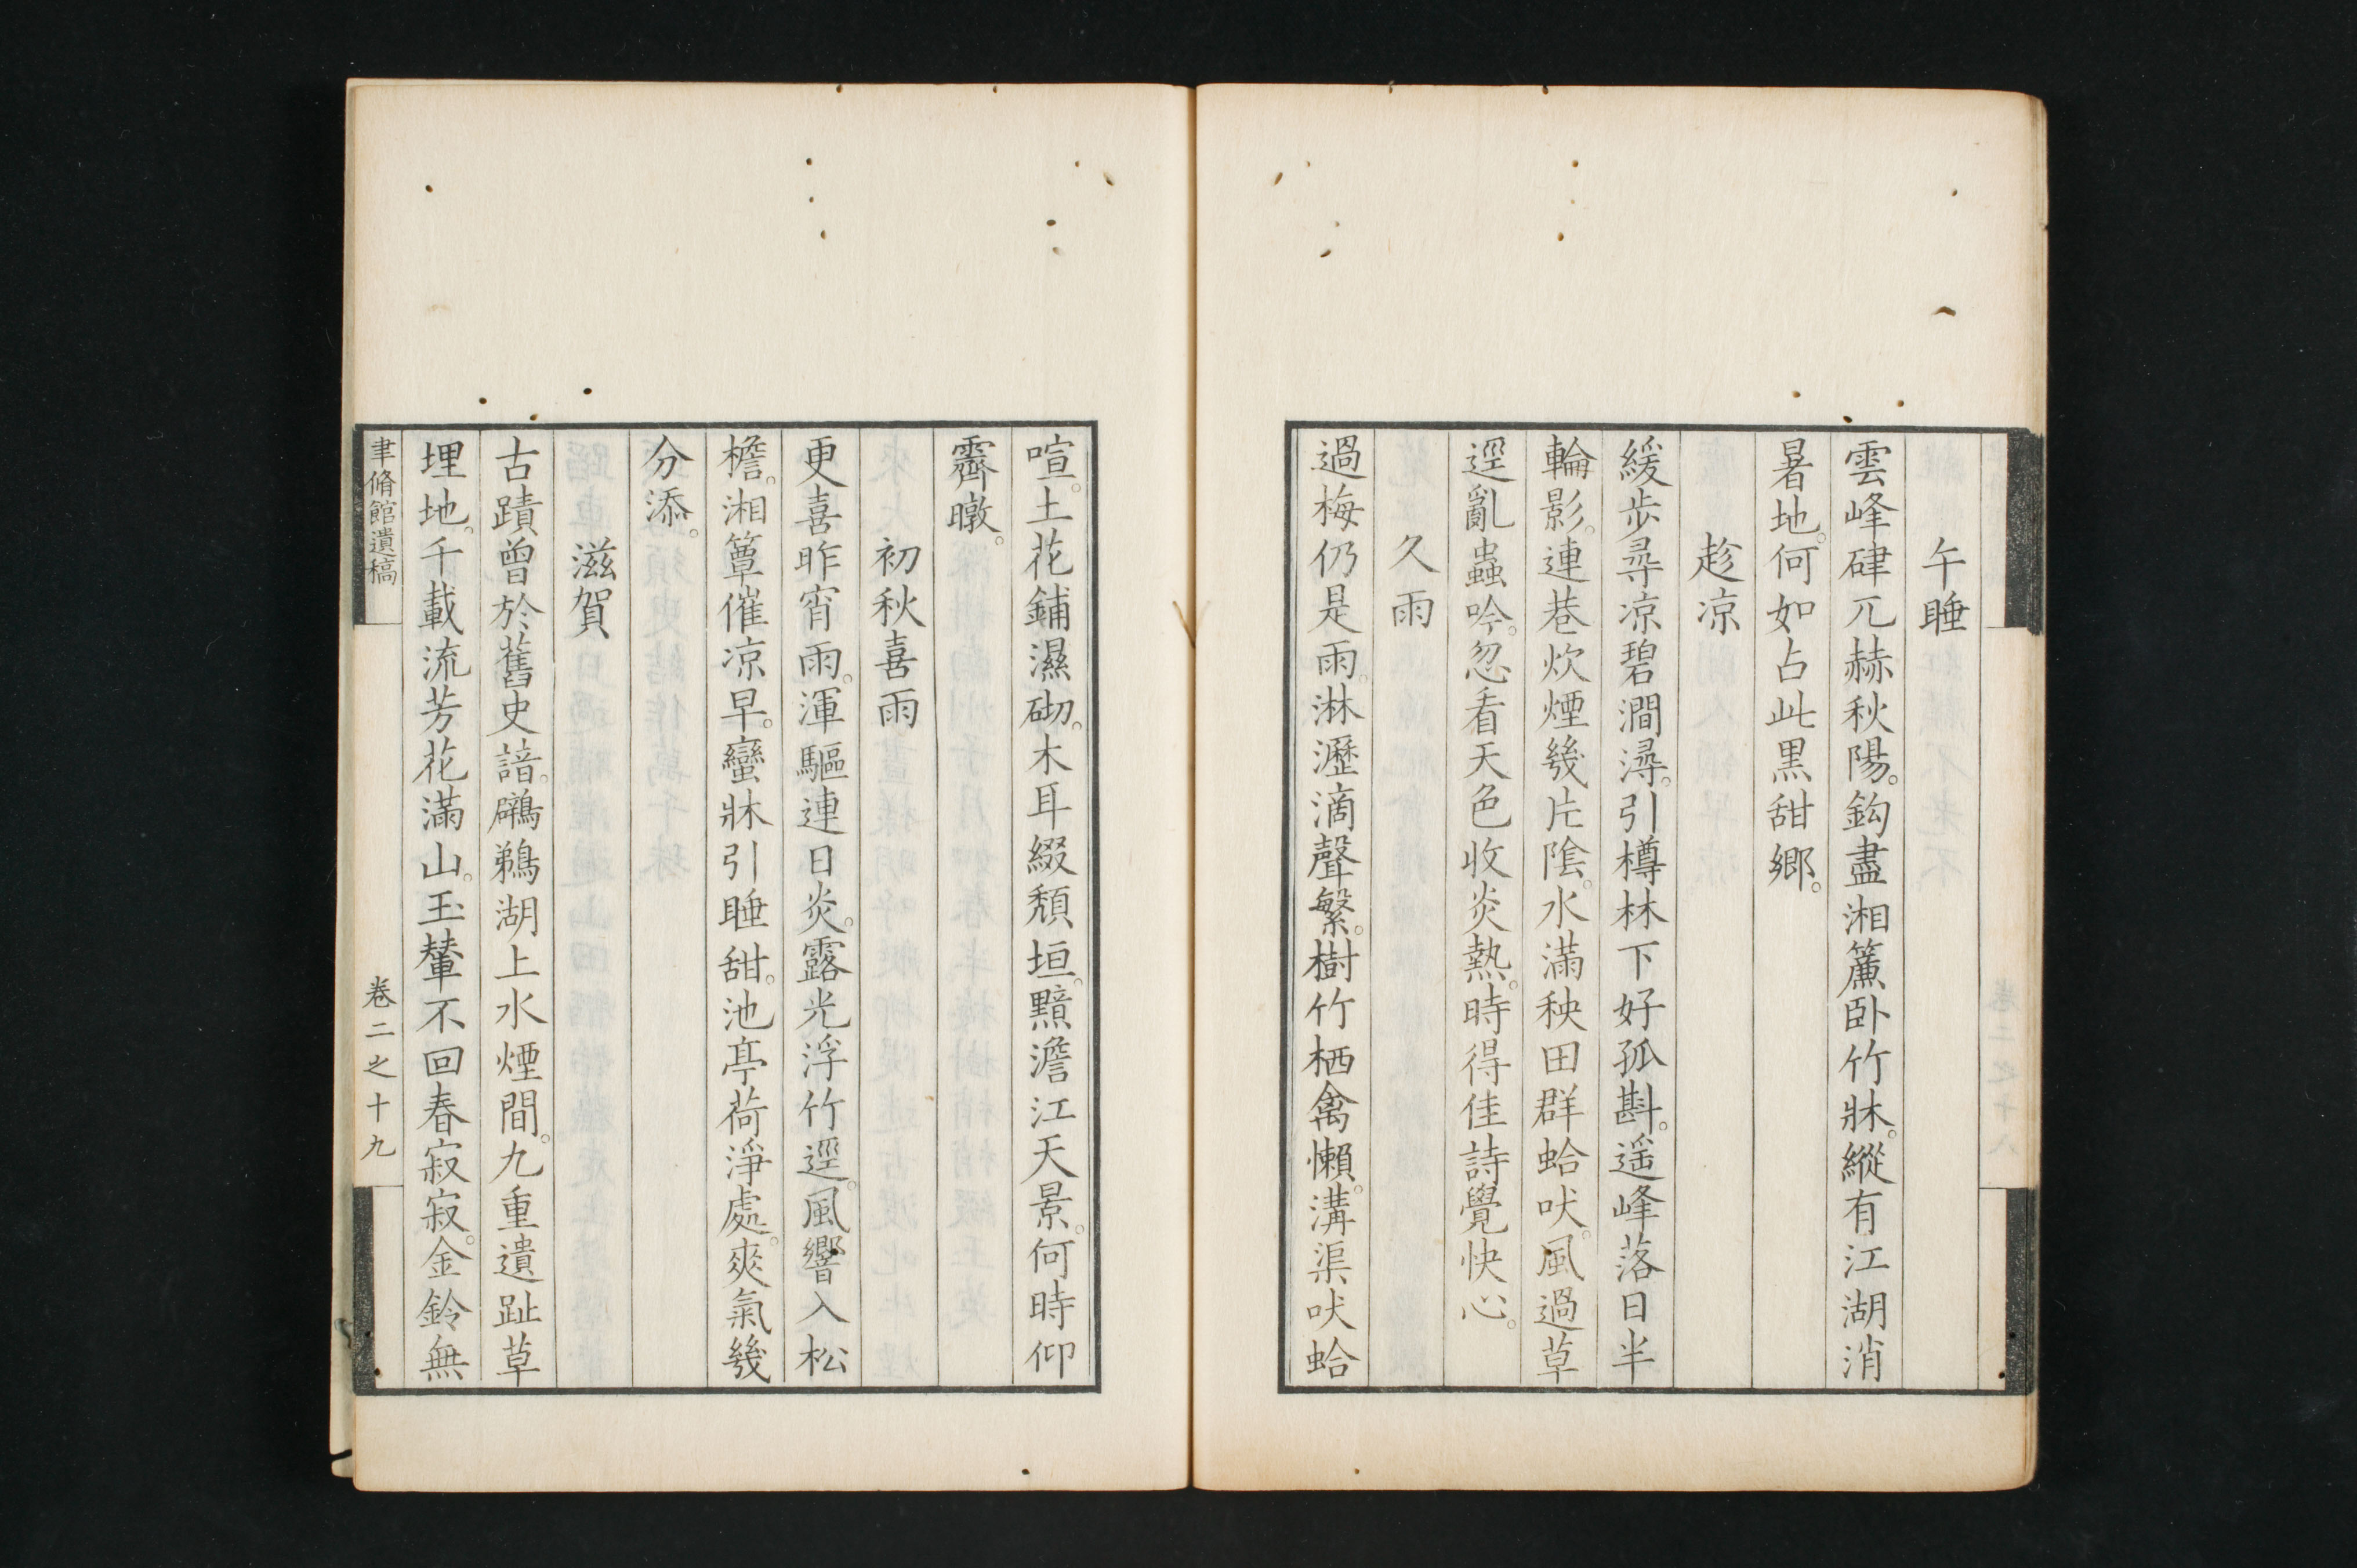 午睡
雲峰硉兀赫秋陽。鈎盡湘簾臥竹牀。縱有江湖消
暑地。何如占此黒甜鄉。
趁凉
緩歩尋凉碧澗潯。引樽林下好孤斟。遥峰落日半
輪影。連巷炊煙幾片陰。水滿秧田群蛤吠。風過草
逕亂蟲吟。忽看天色收炎熱。時得佳詩覺快心。
久雨
過梅仍是雨。淋瀝滴聲繁。樹竹栖禽懶。溝渠吠蛤
喧。土花鋪濕砌。木耳綴頽垣。黯澹江天景。何時仰
霽暾。
初秋喜雨
更喜昨宵雨。渾驅連日炎。露光浮竹逕。風響入松
檐。湘簟催凉早。蠻牀引睡甜。池亭荷淨處。爽氣幾
分添。
滋賀
古蹟曾於舊史諳。鸊鵜湖上水煙間。九重遺趾草
埋地。千載流芳花滿山。玉輦不回春寂寂。金鈴無
聿脩館遺稿
卷二之十九